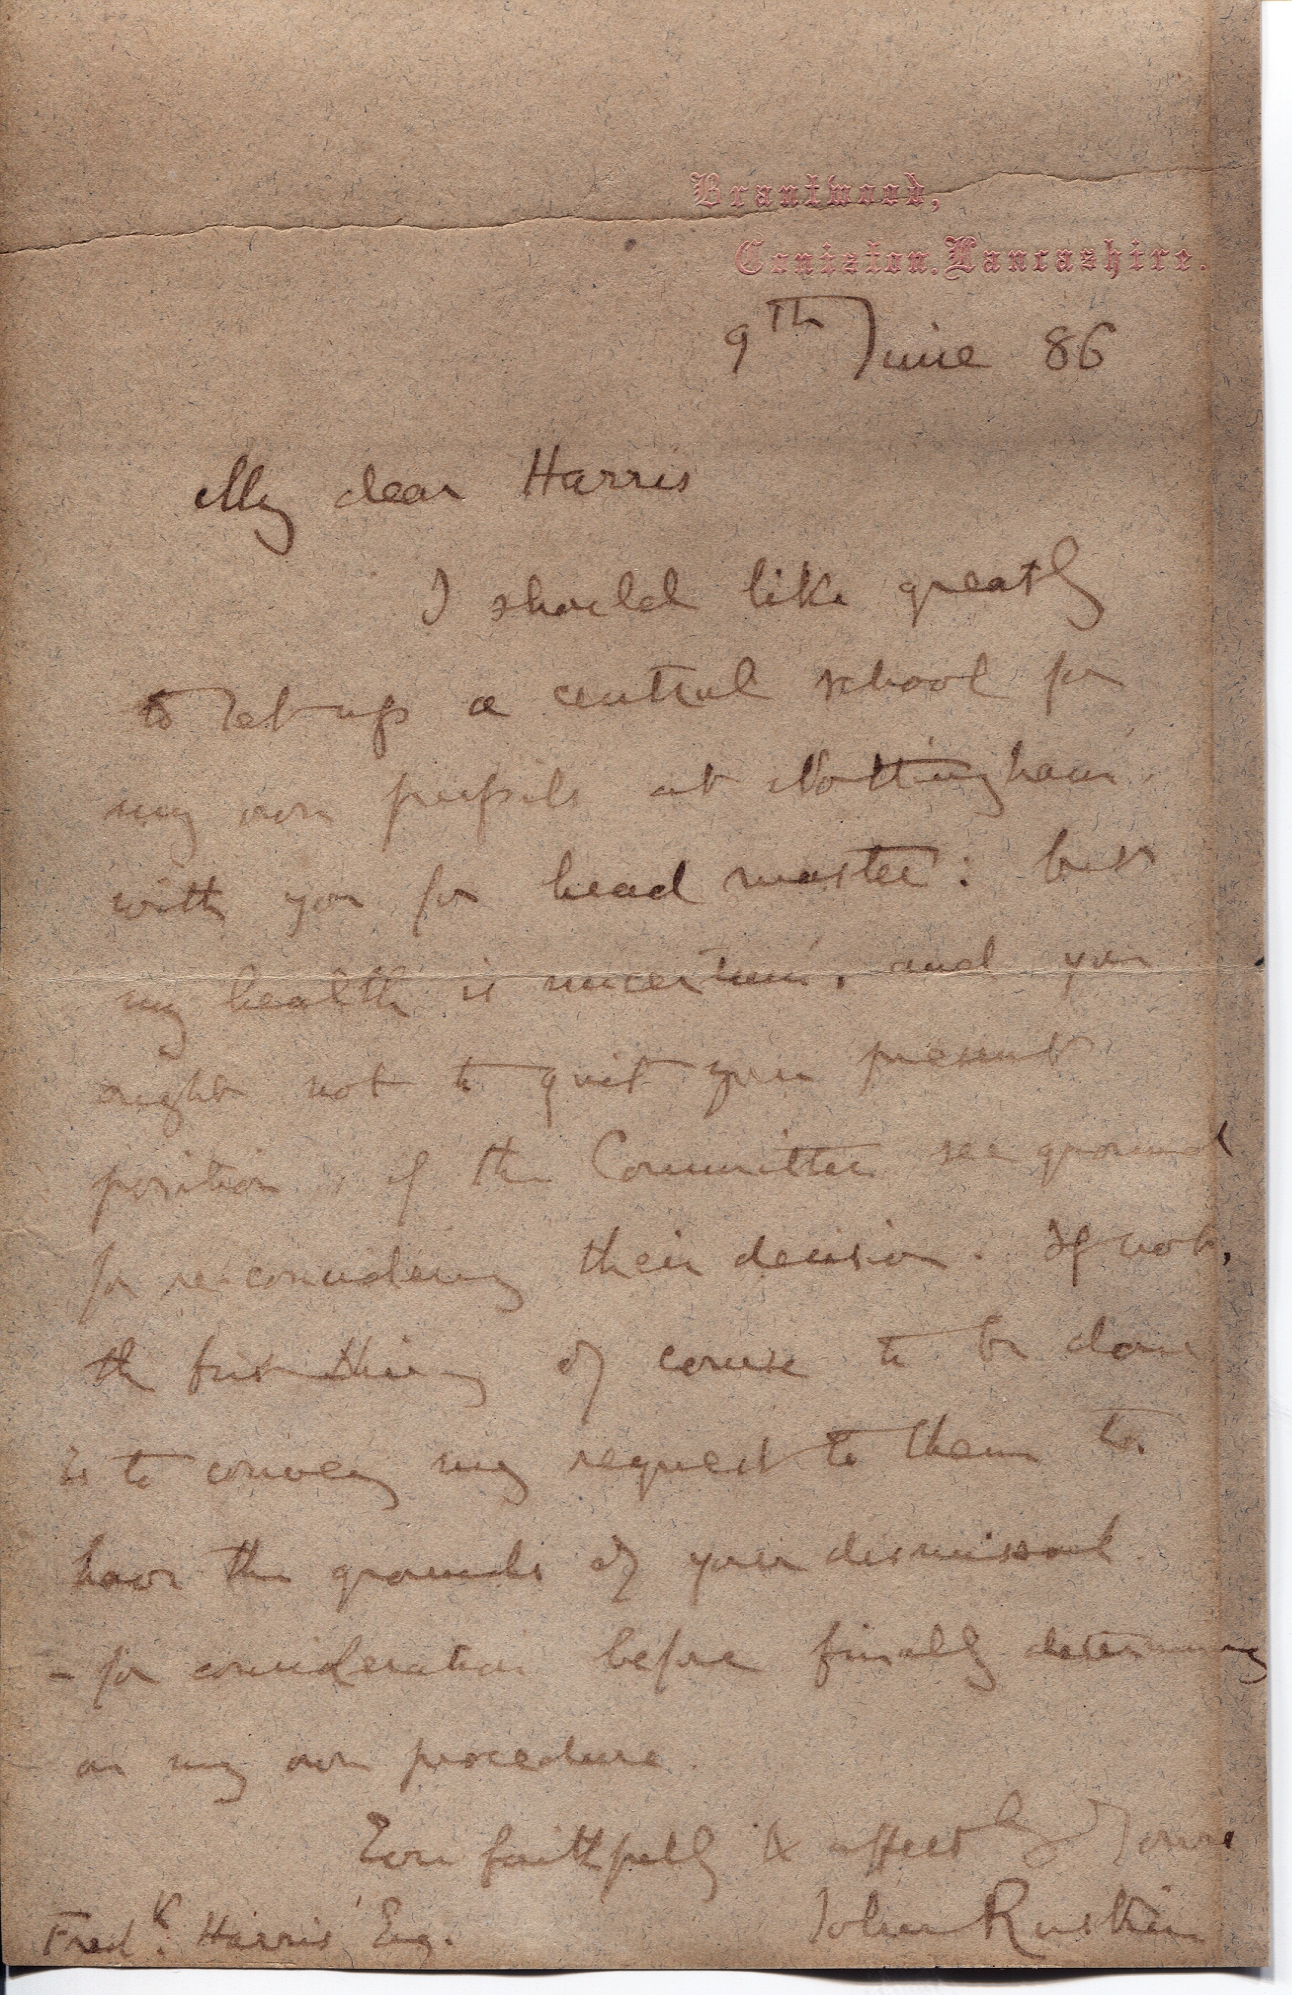 Brantwood,
Coniston, Lancashire.
9th June 86
My dear Harris
I should like greatly
to set up a central school for
my own pupils at Nottingham
with you for head master: but
my health is uncertain, and you
ought not to quit your present
position, if the Committee see ground
for re-considering their decision. If not,
the first thing of course to be done
is to convey my request to them to
have the grounds of your dismissal
- for consideration before finally determining
on my own procedure
Ever faithfully & affectly Yours
John Ruskin
Fredk. Harris Esq.